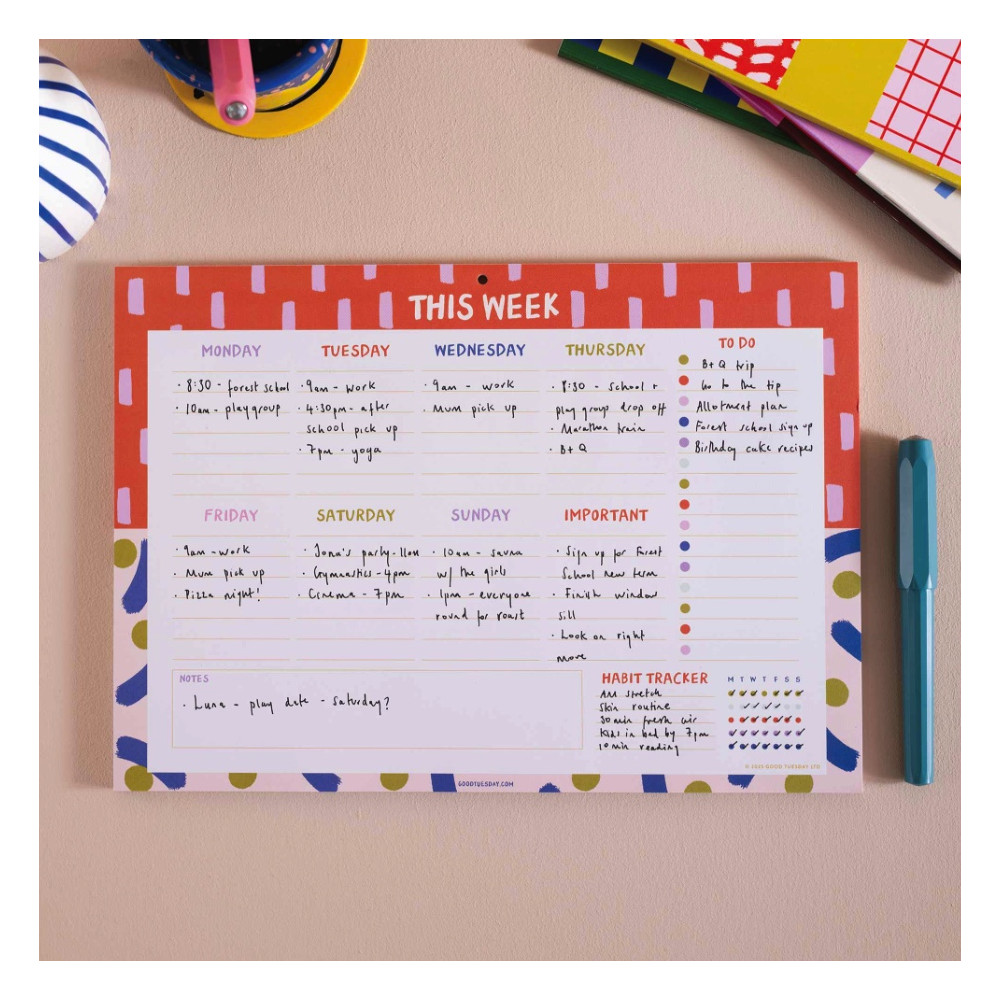 THIS WEEK
MONDAY
· 8:30 - forest school
· 10am - playgroup
TUESDAY
· 9am - work
· 4:30pm - after
school pick up
· 7pm - yoga
WEDNESDAY
· 9am - work
· Mum pick up
THURSDAY
· 8:30 - school +
play group drop off
· Marathon train
· B+Q
TO DO
B+Q trip
Go to the tip
Allotment plan
Forest school sign up
Birthday cake recipes
FRIDAY
· 9am - work
· Mum pick up
· Pizza night!
SATURDAY
· Jona's party - 11am
· Gymnastics - 4pm
· Cinema - 7pm
SUNDAY
· 10am - sauna
w/ the girls
· 1pm - everyone
round for roast
IMPORTANT
· Sign up for Forest
School new term
· Finish window
sill
· Look on right
move
NOTES
· Luna - play date - saturday?
HABIT TRACKER M T W T F S S
AM stretch
Skin routine
30 min fresh air
Kids in bed by 7pm
10 min reading
GOOD TUESDAY LTD
GOODTUESDAY.COM